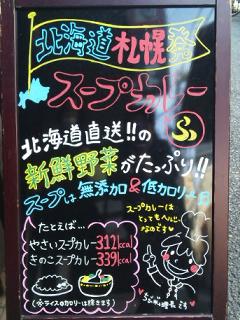 北海道札幌発
スープカレー
北海道直送!!の
新鮮野菜がたっぷり!!
スープは無添加&低カロリー
たとえば…
やさいスープカレー 312kcal
きのこスープカレー 339kcal
(※ライスのカロリーは除きます)
スープカレーは
とってもヘルシー
なのです♥